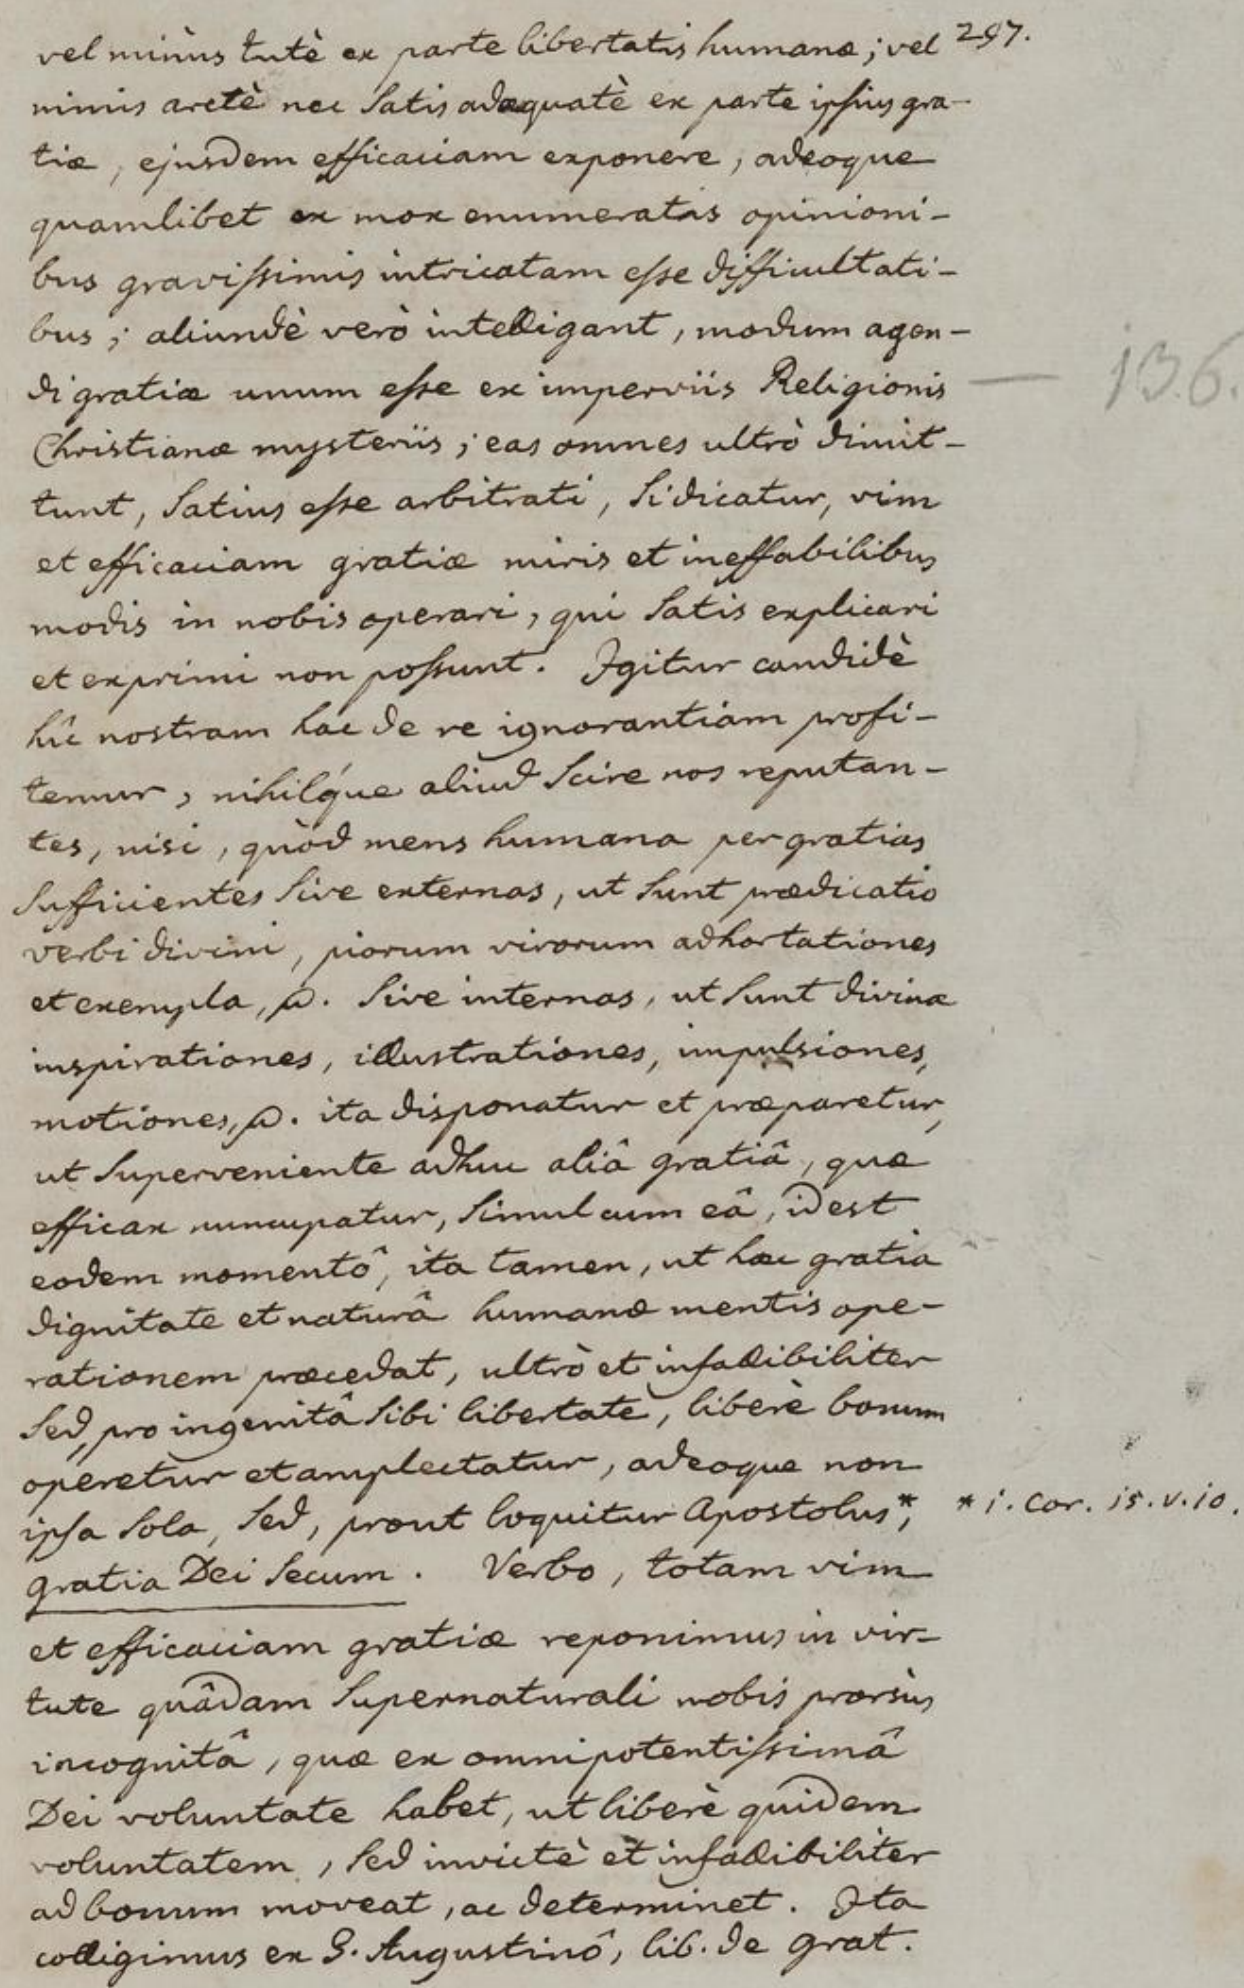 vel minùs tutè ex parte libertatis humanæ; vel 297.
nimis arctè nec satis adæquatè ex parte ipsius gra-
tiæ, ejusdem efficaciam exponere, adeoque
quamlibet ex mox enumeratis opinioni-
bus gravissimis intricatam esse difficultati-
bus; aliundè verò intelligant, modum agen-
di gratiæ unum esse ex imperviis Religionis — 136.
Christianæ mysteriis; eas omnes ultrò dimit-
tunt, satius esse arbitrati, si dicatur, vim
et efficaciam gratiæ miris et ineffabilibus
modis in nobis operari, qui satis explicari
et exprimi non possunt. Igitur candidè
hîc nostram hac de re ignorantiam profi-
temur, nihilq́ue aliud scire nos reputan-
tes, nisi, quòd mens humana per gratias
sufficientes sive externas, ut sunt prædicatio
verbi divini, piorum virorum adhortationes
et exempla, &. sive internas, ut sunt divinæ
inspirationes, illustrationes, impulsiones,
motiones, &. ita disponatur et præparetur,
ut superveniente adhuc aliâ gratiâ, quæ
efficax nuncupatur, simul cum eâ, id est
eodem momentô, ita tamen, ut hæc gratia
dignitate et naturâ humanæ mentis ope-
rationem præcedat, ultrò et infallibiliter
sed, pro ingenitâ sibi libertate, liberè bonum
operetur et amplectatur, adeoque non
ipsa sola, sed, prout loquitur Apostolus*, * i. Cor. 15. v. 10.
gratia Dei secum. Verbo, totam vim
et efficaciam gratiæ reponimus in vir-
tute quâdam supernaturali nobis prorsùs
incognitâ, quæ ex omnipotentissimâ
Dei voluntate habet, ut liberè quidem
voluntatem, sed invictè et infallibiliter
ad bonum moveat, ac determinet. Ita
colligimus ex S. Augustinô, lib. de grat.